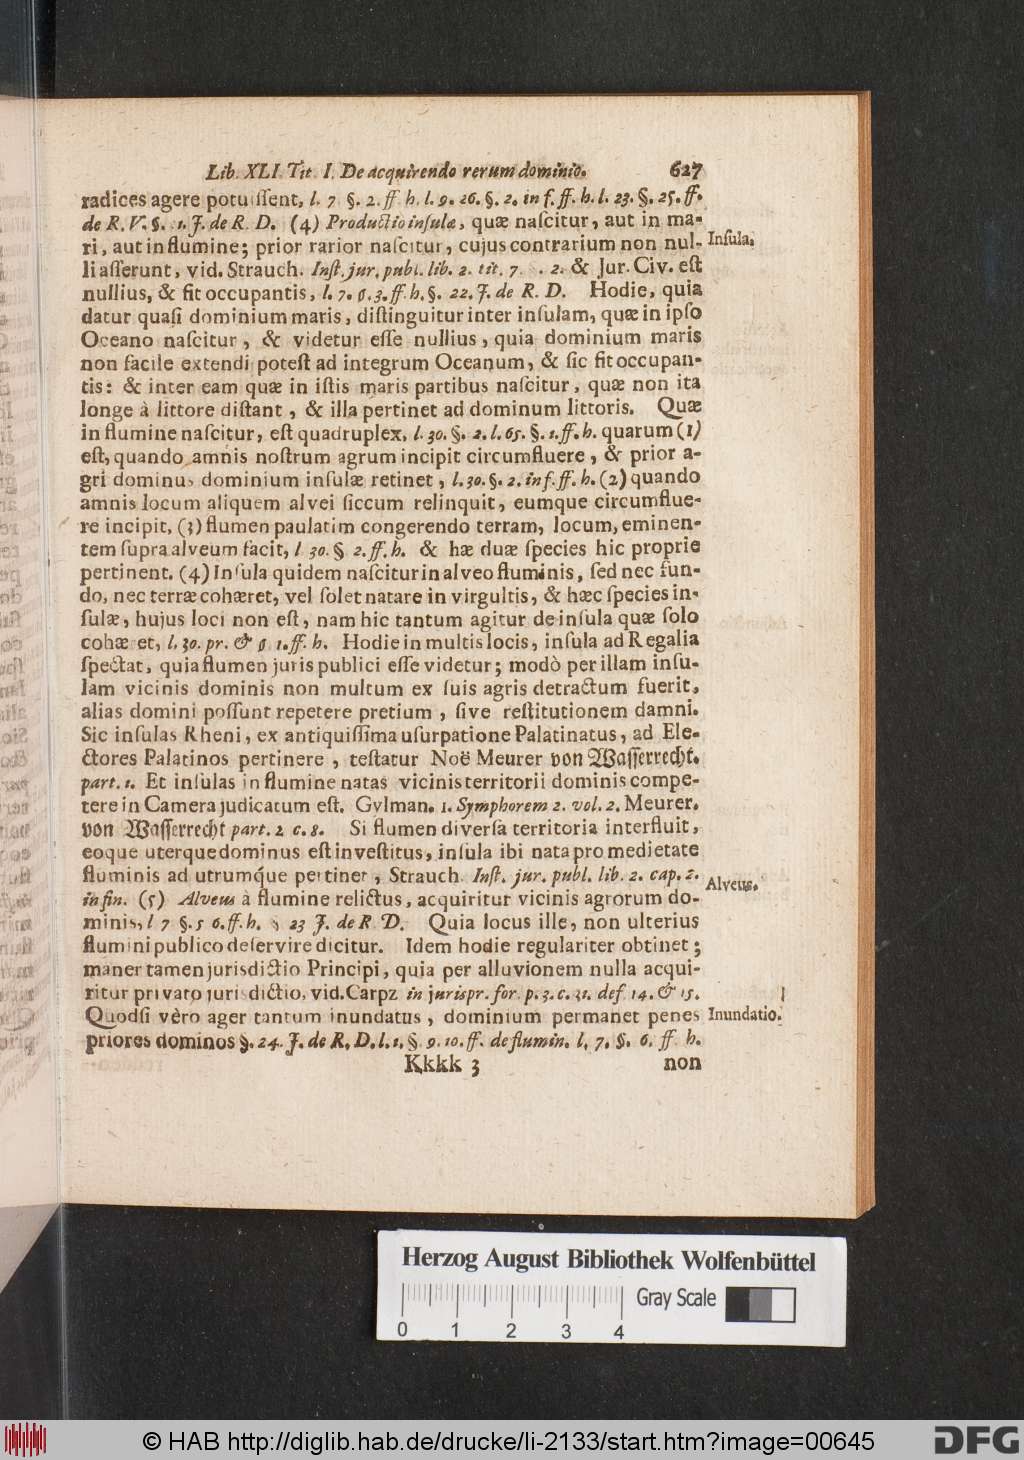 Lib. XLI. Tit. I. De acquirendo rerum dominio. 627
radices agere potuiſſent, l. 7. §. 2. ff. h. l. 9. 26. §. 2. in f. ff. h. l. 23. §. 25. ff.
de R. V. §. 31. J. de R. D. (4) Productio inſulæ, quæ naſcitur, aut in ma-
ri, aut in flumine; prior rarior naſcitur, cujus contrarium non nul-
Inſula.
li aſſerunt, vid. Strauch. Inſt. jur. publ. lib. 2. tit. 7. §. 2. & Jur. Civ. eſt
nullius, & fit occupantis, l. 7. §. 3. ff. h. §. 22. J. de R. D. Hodie, quia
datur quaſi dominium maris, diſtinguitur inter inſulam, quæ in ipſo
Oceano naſcitur, & videtur eſſe nullius, quia dominium maris
non facile extendi poteſt ad integrum Oceanum, & ſic fit occupan-
tis: & inter eam quæ in iſtis maris partibus naſcitur, quæ non ita
longe à littore diſtant, & illa pertinet ad dominum littoris. Quæ
in flumine naſcitur, eſt quadruplex, l. 30. §. 2. l. 65. §. 1. ff. h. quarum (1)
eſt, quando amnis noſtrum agrum incipit circumfluere, & prior a-
gri dominus dominium inſulæ retinet, l. 30. §. 2. in f. ff. h. (2) quando
amnis locum aliquem alvei ſiccum relinquit, eumque circumflue-
re incipit, (3) flumen paulatim congerendo terram, locum, eminen-
tem ſupra alveum facit, l. 30. §. 2. ff. h. & hæ duæ ſpecies hic proprie
pertinent. (4) Inſula quidem naſcitur in alveo fluminis, ſed nec fun-
do, nec terræ cohæret, vel ſolet natare in virgultis, & hæc ſpecies in-
ſulæ, hujus loci non eſt, nam hic tantum agitur de inſula quæ ſolo
cohæret, l. 30. pr. & §. 1. ff. h. Hodie in multis locis, inſula ad Regalia
ſpectat, quia flumen juris publici eſſe videtur; modò per illam inſu-
lam vicinis dominis non multum ex ſuis agris detractum fuerit,
alias domini poſſunt repetere pretium, ſive reſtitutionem damni.
Sic inſulas Rheni, ex antiquiſſima uſurpatione Palatinatus, ad Ele-
ctores Palatinos pertinere, teſtatur Noë Meurer von Waſſerrecht.
part. 1. Et inſulas in flumine natas vicinis territorii dominis compe-
tere in Camera judicatum eſt. Gylman. 1. Symphorem 2. vol. 2. Meurer.
von Waſſerrecht part. 2 c. 8. Si flumen diverſa territoria interfluit,
eoque uterque dominus eſt inveſtitus, inſula ibi nata pro medietate
fluminis ad utrumque pertinet, Strauch. Inſt. jur. publ. lib. 2. cap. 2.
Alveus.
in fin. (5) Alveus à flumine relictus, acquiritur vicinis agrorum do-
minis, l 7 §. 5 6. ff. h. § 23 J. de R. D. Quia locus ille, non ulterius
flumini publico deſervire dicitur. Idem hodie regulariter obtinet;
manet tamen jurisdictio Principi, quia per alluvionem nulla acqui-
ritur privato jurisdictio, vid. Carpz in jurispr. for. p. 3. c. 31. def. 14. & 15.
Quodſi vèro ager tantum inundatus, dominium permanet penes
Inundatio.
priores dominos §. 24. J. de R. D. l. 1. §. 9. 10. ff. de flumin. l. 7. §. 6. ff. h.
Kkkk 3 non
Herzog August Bibliothek Wolfenbüttel
Gray Scale
0 1 2 3 4
© HAB http://diglib.hab.de/drucke/li-2133/start.htm?image=00645
DFG